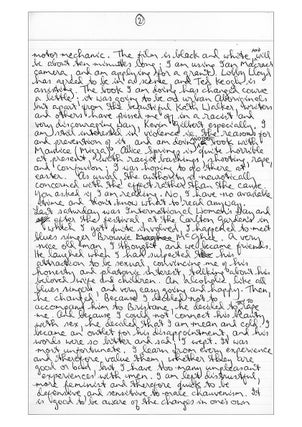 ②
motor mechanic. The film is black and white and will
be about ten minutes long; I am using Ian Macrae's
camera, and am applying for a grant. Lobby Lloyd
has agreed to be in as score, and Ted Keogh is
assisting. The book I am doing has changed course
a little; it was going to be on urban Aboriginals
but apart from the beautiful Kath Walker, writers
and others have pissed me off in a racist and
very disconcerting way. Kevin Gilbert especially, I
am still interested in violence ie. the reasons for
and prevention of it and am doing a book with
Maurice Pruggitt. Alice Springs is quite horrible
at present with racial bashings, shooting, rape,
and confusion. I was hoping to do there at
easter. As usual the authority is neurotically
concerned with the effect rather than the cause.
You asked if I am reading. No, I have no available
time and don't know what to read anyway.
Last saturday was International Womens Day and
after the festival at the Carlton Gardens in
which I got quite involved, I happened to meet
blues singer Brownie McGhee. A very
nice old man I thought and we became friends.
He laughed when I had suspected his
attraction to be sexual, convincing me of his
honesty and platonic interest, talking about his
beloved wife and children. An alcoholic like all
blues singers and very easy going and happy. Then
he changed! Because I decided not to
accompany him to Brisbane, he decided to rape
me. And because I could not connect his beauty
with sex, he decided that I am mean and cold. I
became an outlet for his disappointment, and his
words were so bitter and sad I wept. It was
most unfortunate. I learn from every experience
and therefore value them whether they are
good or bad, but I have too many unpleasant
experiences with men. I am left distrustful,
more feminist and therefore quick to be
defensive and sensitive to male chauvenism. It
is good to be aware of the changes in one's own